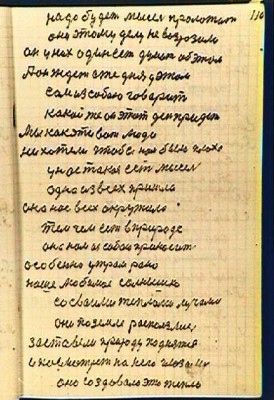 110
надо будет мысел проложит
они этому делу не возрозило
он у нас один ест думат об этом
А он ждет еже дня у этом
сам из собою говорит
какой же он этот ден придет
Мы как эта вот люди
не хотели чтобе нам было плохо
у нас такая ест мысел
одна из всех пришла
она нас всех окружила
тем чем ест в природе
оно нам из собой приносит
особенно утрам рано
наше любимое солнышко
со своими теплами лучами
они по земле расколялис
заставели природу поднятся
и посмотрет на него глазами
оно создовало это тепло